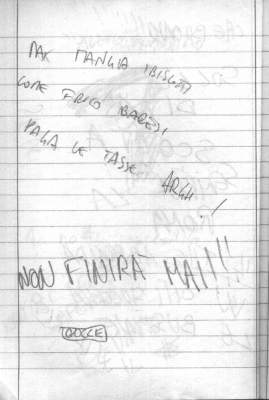 MAX MANGIA I BISCOTTI
COME FRICO BARESI
PAGA LE TASSE ARGH!
NON FINIRÀ MAI!!!